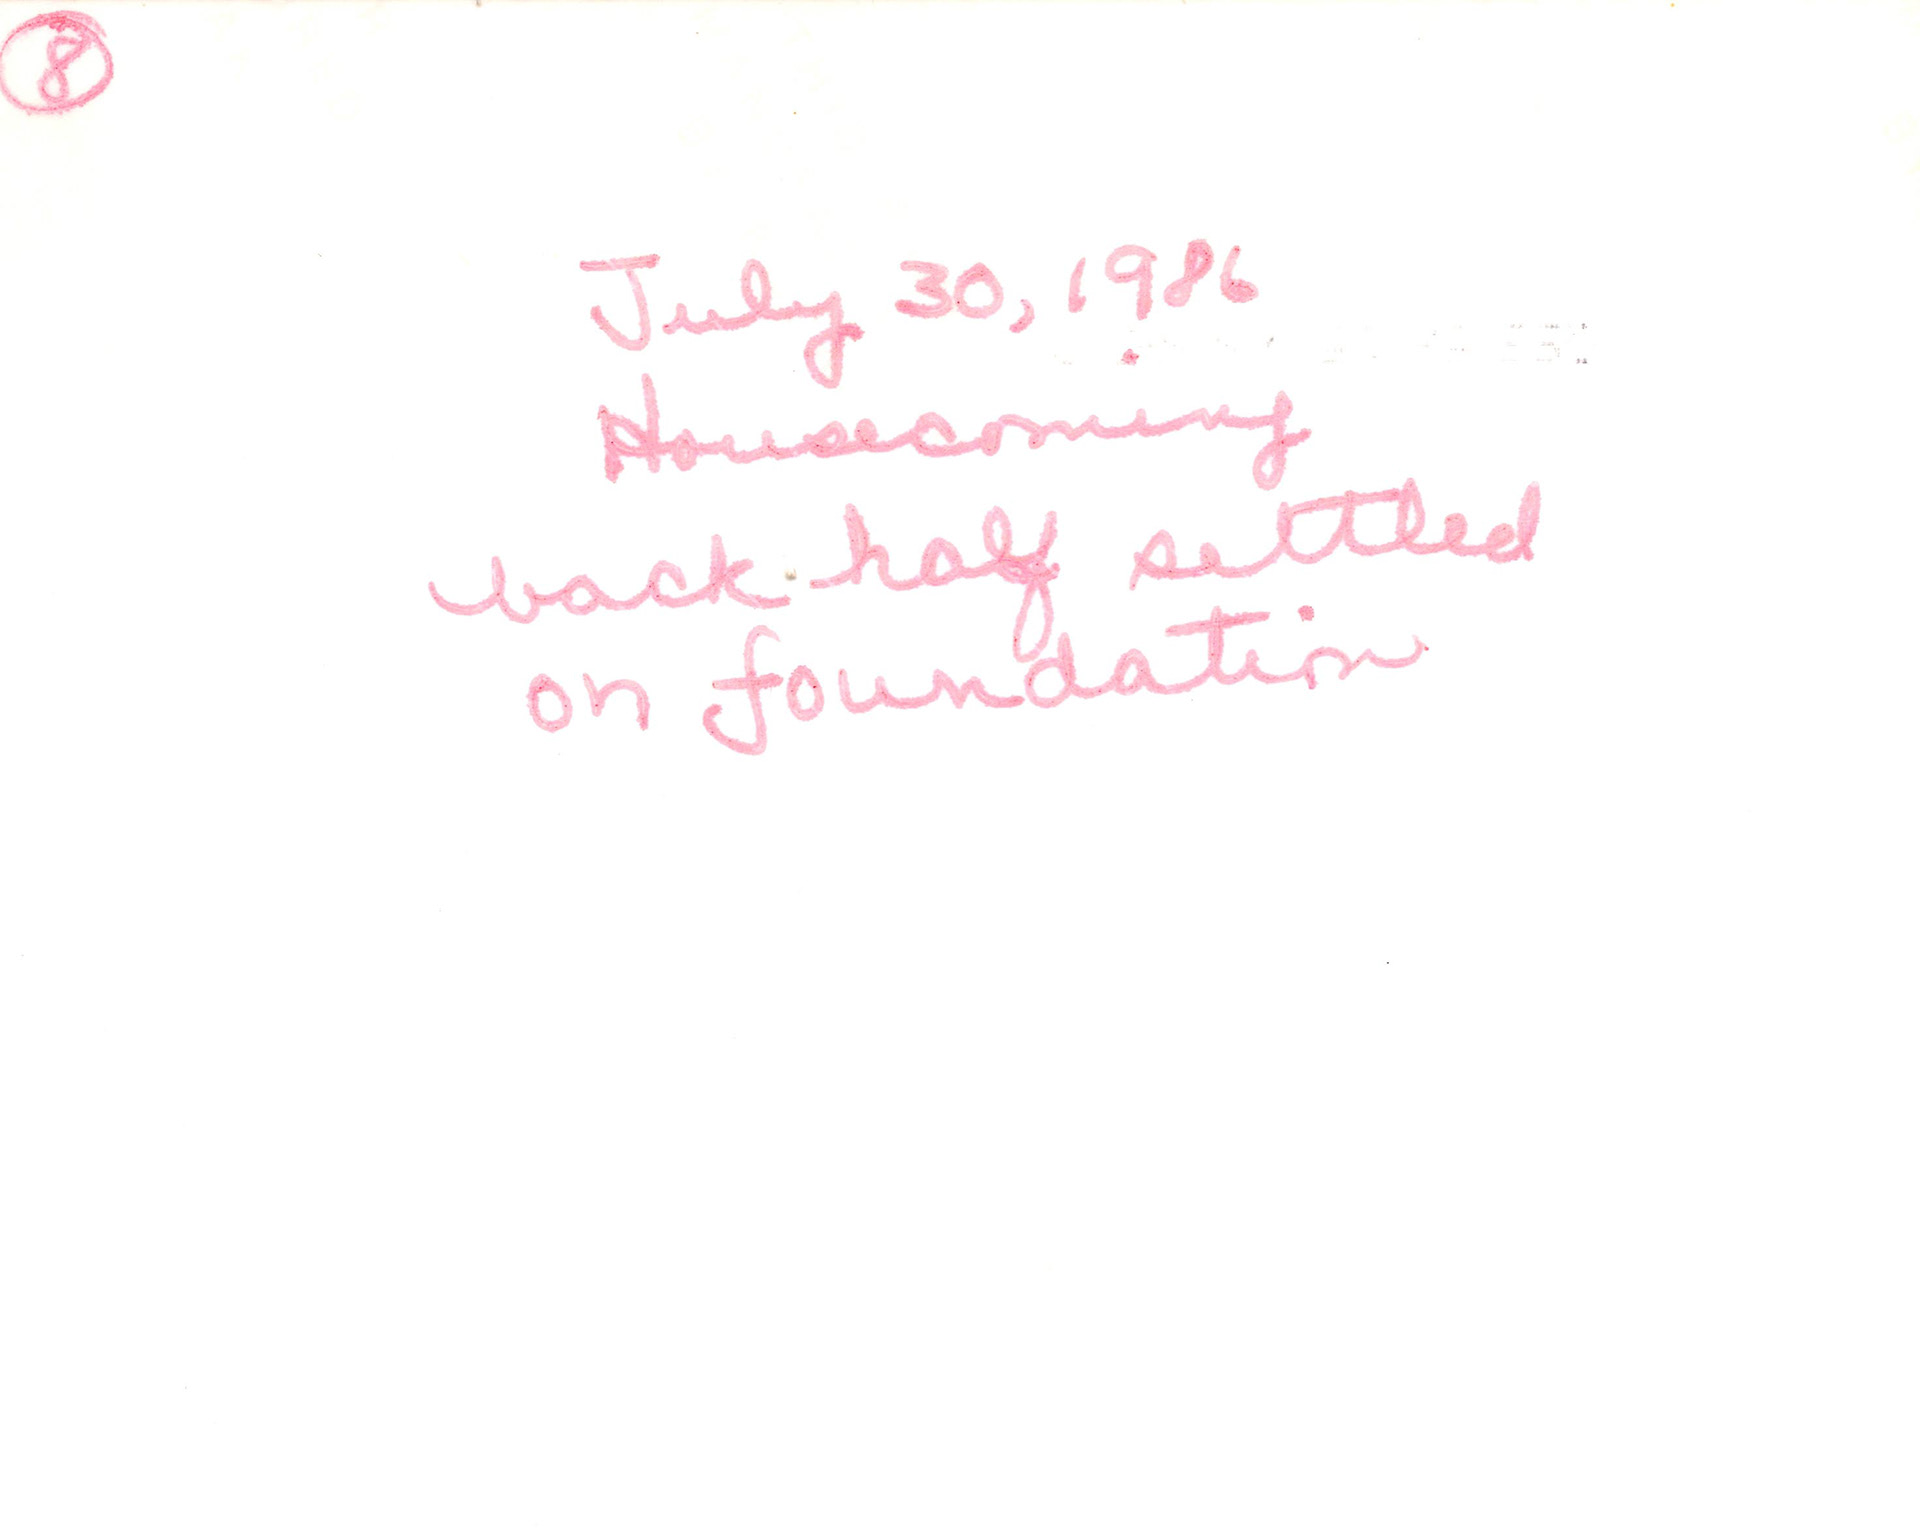 8
July 30, 1986
Housecoming
back half settled
on foundation